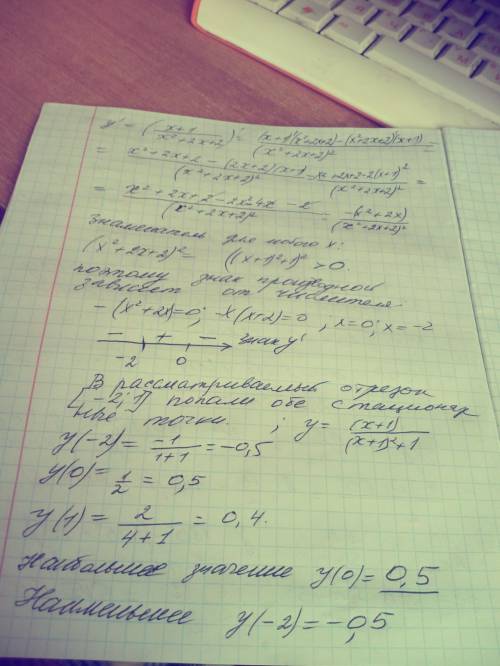 y' = (x+1 / x²+2x+2)' = (x+1)'(x²+2x+2) − (x²+2x+2)'(x+1) / (x²+2x+2)² =
= x²+2x+2 − (2x+2)(x+1) / (x²+2x+2)² = x²+2x+2−2(x+1)² / (x²+2x+2)² =
= x²+2x+2−2x²−4x−2 / (x²+2x+2)² = −(x²+2x) / (x²+2x+2)²
Знаменатель для любого x:
(x²+2x+2)² = ((x+1)²+1)² > 0
поэтому знак производной
зависит от числителя
−(x²+2x)=0; −x(x+2)=0; x=0; x=−2
− + − знак y'
−2 0
В рассматриваемый отрезок
[−2; 1] попали обе стационар
ные точки. ; y = (x+1) / (x+1)²+1
y(−2) = −1 / 1+1 = −0,5
y(0) = 1/2 = 0,5
y(1) = 2 / 4+1 = 0,4.
Наибольшее значение y(0) = 0,5
Наименьшее y(−2) = −0,5